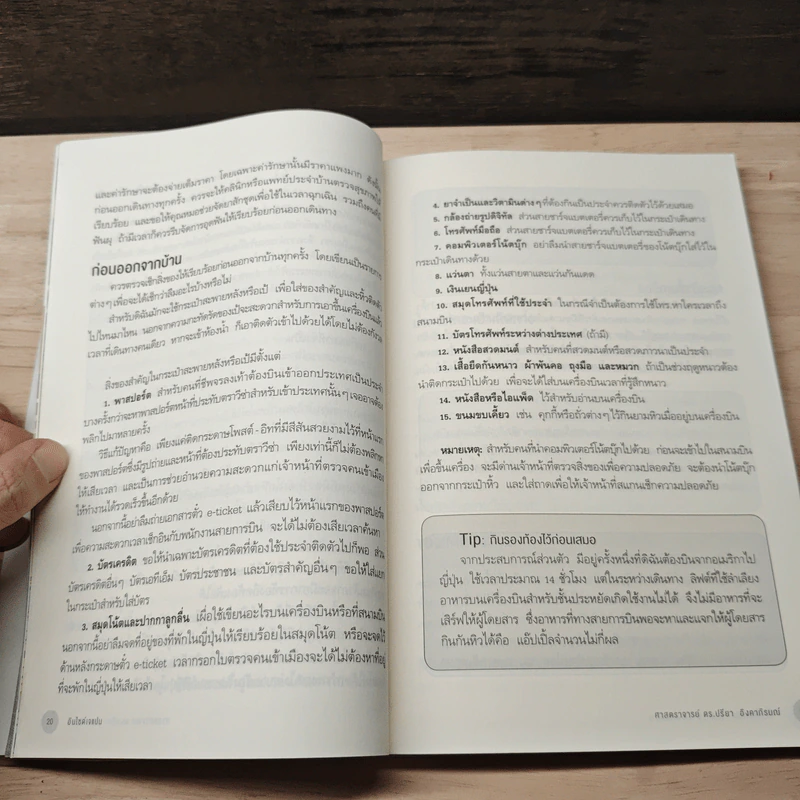 และค่ารักษาจะต้องจ่ายเต็มราคา โดยเฉพาะค่ารักษานั้นมีราคาแพงมาก ดังนั้น
ก่อนออกเดินทางทุกครั้ง ควรจะให้คลินิกหรือแพทย์ประจำบ้านตรวจสุขภาพให้
เรียบร้อย และขอให้คุณหมอช่วยจัดยาสักชุดเพื่อใช้ในเวลาฉุกเฉิน รวมถึงคนที่มี
ฟันผุ ถ้ามีเวลาก็ควรรีบจัดการอุดฟันให้เรียบร้อยก่อนออกเดินทาง
ก่อนออกจากบ้าน
ควรตรวจเช็กสิ่งของให้เรียบร้อยก่อนออกจากบ้านทุกครั้ง โดยเขียนเป็นรายการ
ต่างๆ เพื่อจะได้เช็กว่าลืมอะไรบ้างหรือไม่
สำหรับดิฉันมักจะใช้กระเป๋าสะพายหลังหรือเป้ เพื่อใส่ของสำคัญและหิ้วติดตัว
ไปไหนมาไหน นอกจากความกะทัดรัดของเป้จะสะดวกสำหรับการเอาขึ้นเครื่องบินแล้ว
เวลาที่เดินทางคนเดียว หากจะเข้าห้องน้ำ ก็เอาติดตัวเข้าไปด้วยได้โดยไม่ต้องกังวล
สิ่งของสำคัญในกระเป๋าสะพายหลังหรือเป้มีดังต่อไปนี้
1. พาสปอร์ต สำหรับคนที่ชีพจรลงเท้าต้องบินเข้าออกประเทศเป็นประจำ
บางครั้งกว่าจะหาพาสปอร์ตหน้าที่ประทับตราวีซ่าสำหรับเข้าประเทศนั้นๆ เจออาจต้อง
พลิกไปมาหลายครั้ง
วิธีแก้ปัญหาคือ เพียงแค่ติดกระดาษโพสต์-อิทที่มีสีสันสวยงามไว้ที่หน้าแรก
ของพาสปอร์ตซึ่งมีรูปถ่ายและหน้าที่ต้องประทับตราวีซ่า เพียงเท่านี้ก็ไม่ต้องพลิกหา
ให้เสียเวลา และเป็นการช่วยอำนวยความสะดวกแก่เจ้าหน้าที่ตรวจคนเข้าเมือง
ให้ทำงานได้รวดเร็วขึ้นอีกด้วย
นอกจากนี้อย่าลืมถ่ายเอกสารตั๋ว e-ticket แล้วเสียบไว้หน้าแรกของพาสปอร์ต
เพื่อความสะดวกเวลาเช็กอินกับพนักงานสายการบิน จะได้ไม่ต้องเสียเวลาค้นหา
2. บัตรเครดิต ขอให้นำเฉพาะบัตรเครดิตที่ต้องใช้ประจำติดตัวไปก็พอ ส่วน
บัตรเครดิตอื่นๆ บัตรเอทีเอ็ม บัตรประชาชน และบัตรสำคัญอื่นๆ ขอให้ใส่แยก
ในกระเป๋าสำหรับใส่บัตร
3. สมุดโน้ตและปากกาลูกลื่น เผื่อใช้เขียนอะไรบนเครื่องบินหรือที่สนามบิน
นอกจากนี้อย่าลืมจดที่อยู่ของที่พักในญี่ปุ่นให้เรียบร้อยในสมุดโน้ต หรือจะจดไว้
ด้านหลังกระดาษตั๋ว e-ticket เวลากรอกใบตรวจคนเข้าเมืองจะได้ไม่ต้องหาที่อยู่
ที่จะพักในญี่ปุ่นให้เสียเวลา
20 อินไซด์เจแปน
4. ยาจำเป็นและวิตามินต่างๆ ที่ต้องกินเป็นประจำควรติดตัวไว้ด้วยเสมอ
5. กล้องถ่ายรูปดิจิทัล ส่วนสายชาร์จแบตเตอรี่ควรเก็บไว้ในกระเป๋าเดินทาง
6. โทรศัพท์มือถือ ส่วนสายชาร์จแบตเตอรี่ควรเก็บไว้ในกระเป๋าเดินทาง
7. คอมพิวเตอร์โน้ตบุ๊ก อย่าลืมนำสายชาร์จแบตเตอรี่ของโน้ตบุ๊กใส่ไว้ใน
กระเป๋าเดินทางด้วย
8. แว่นตา ทั้งแว่นสายตาและแว่นกันแดด
9. เงินเยนญี่ปุ่น
10. สมุดโทรศัพท์ที่ใช้ประจำ ในกรณีจำเป็นต้องการใช้โทร.หาใครเวลาถึง
สนามบิน
11. บัตรโทรศัพท์ระหว่างต่างประเทศ (ถ้ามี)
12. หนังสือสวดมนต์ สำหรับคนที่สวดมนต์หรือสวดภาวนาเป็นประจำ
13. เสื้อยืดกันหนาว ผ้าพันคอ ถุงมือ และหมวก ถ้าเป็นช่วงฤดูหนาวต้อง
นำติดกระเป๋าไปด้วย เพื่อจะได้ใส่บนเครื่องบินเวลาที่รู้สึกหนาว
14. หนังสือหรือไอแพ็ด ไว้สำหรับอ่านบนเครื่องบิน
15. ขนมขบเคี้ยว เช่น คุกกี้หรือถั่วต่างๆ ไว้กินยามหิวเมื่ออยู่บนเครื่องบิน
หมายเหตุ: สำหรับคนที่นำคอมพิวเตอร์โน้ตบุ๊กไปด้วย ก่อนจะเข้าไปในสนามบิน
เพื่อขึ้นเครื่อง จะมีด่านเจ้าหน้าที่ตรวจสิ่งของเพื่อความปลอดภัย จะต้องนำโน้ตบุ๊ก
ออกจากกระเป๋าหิ้ว และใส่ถาดเพื่อให้เจ้าหน้าที่สแกนเช็กความปลอดภัย
Tip: กินรองท้องไว้ก่อนเสมอ
จากประสบการณ์ส่วนตัว มีอยู่ครั้งหนึ่งที่ดิฉันต้องบินจากอเมริกาไป
ญี่ปุ่น ใช้เวลาประมาณ 14 ชั่วโมง แต่ในระหว่างเดินทาง ลิฟต์ที่ใช้ลำเลียง
อาหารบนเครื่องบินสำหรับชั้นประหยัดเกิดใช้งานไม่ได้ จึงไม่มีอาหารที่จะ
เสิร์ฟให้ผู้โดยสาร ซึ่งอาหารที่ทางสายการบินพอจะหาและแจกให้ผู้โดยสาร
กินกันหิวได้คือ แอ๊ปเปิ้ลจำนวนไม่กี่ผล
ศาสตราจารย์ ดร.ปรียา อิงคาภิรมณ์